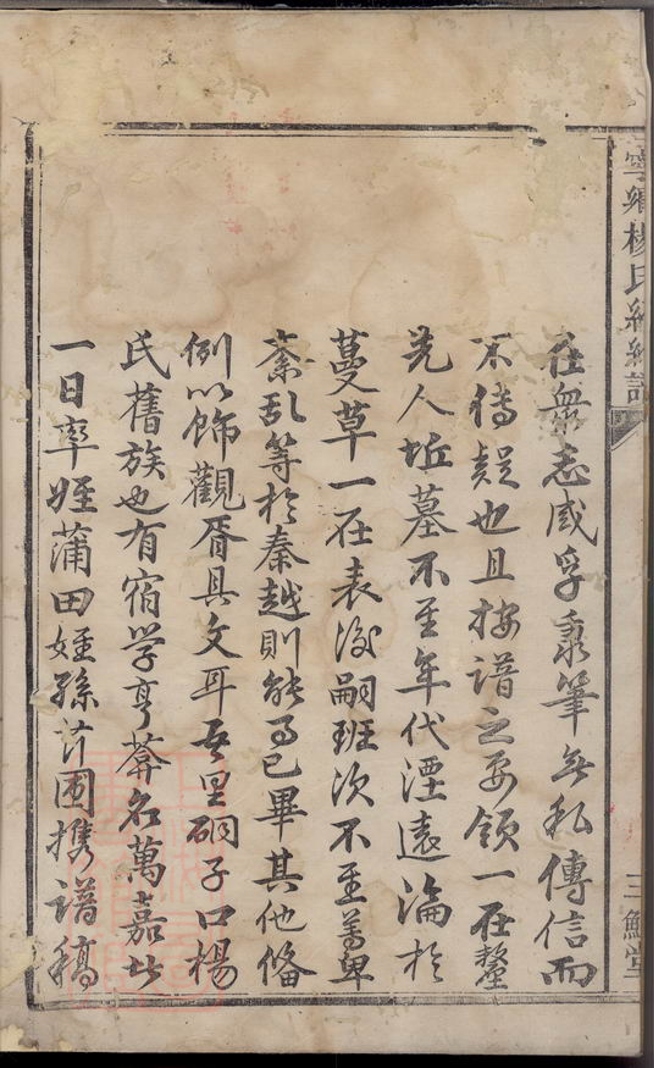 寧鄉楊氏續譜
三鱣堂
在衆志咸孚秉筆無私傳信而
不傳疑也且按譜之要領一在釐
先人坵墓不至年代湮遠淪於
蔓草一在表後嗣班次不至尊卑
紊乱等於秦越則能事已畢其他俻
例以飾觀胥具文耳吾里硐子口楊
氏舊族也有宿学亨菴名萬嘉者
一日率姪蒲田姪孫竹圃携譜稿